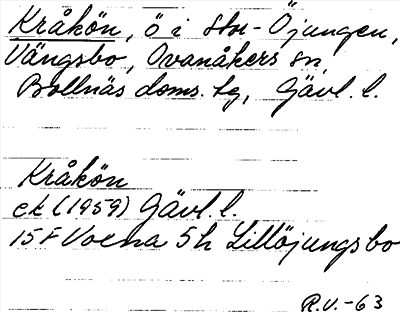 Kråkön, ö i Stor-Öjungen,
Vängsbo, Ovanåkers sn,
Bollnäs doms. tg, Gävl. l.
Kråkön
ek (1959) Gävl. l.
15F Voxna 5h Lillöjungsbo
R.V.-63